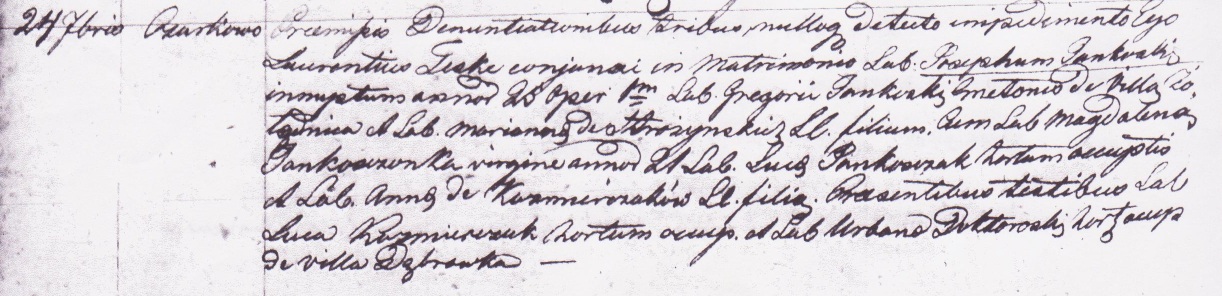 24 7bris Ozarkowo Præmissis Denuntiationibus tribus, nulloq detecto impedimento Ego
Laurentius Teske conjunxi in Matrimonio Lab. Josephum Jankoski
innuptum annor 25 oper Lab. Gregorii Jankoski Cmetonis de Villa
et Lab. Mariannę de Mrozynskich Ll. filium. Cum Lab Magdalena
Jankosczonka virgine annor 21 Lab. Lucę Jankosczak hortum occuptis
et Lab. Annę de Kazmierczaków Ll. filią. Præsentibus testibus Lab
Luca Kazmierczak hortum occup. et Lab Urbano Doktorski, hort occup
de villa Dąbrowka —